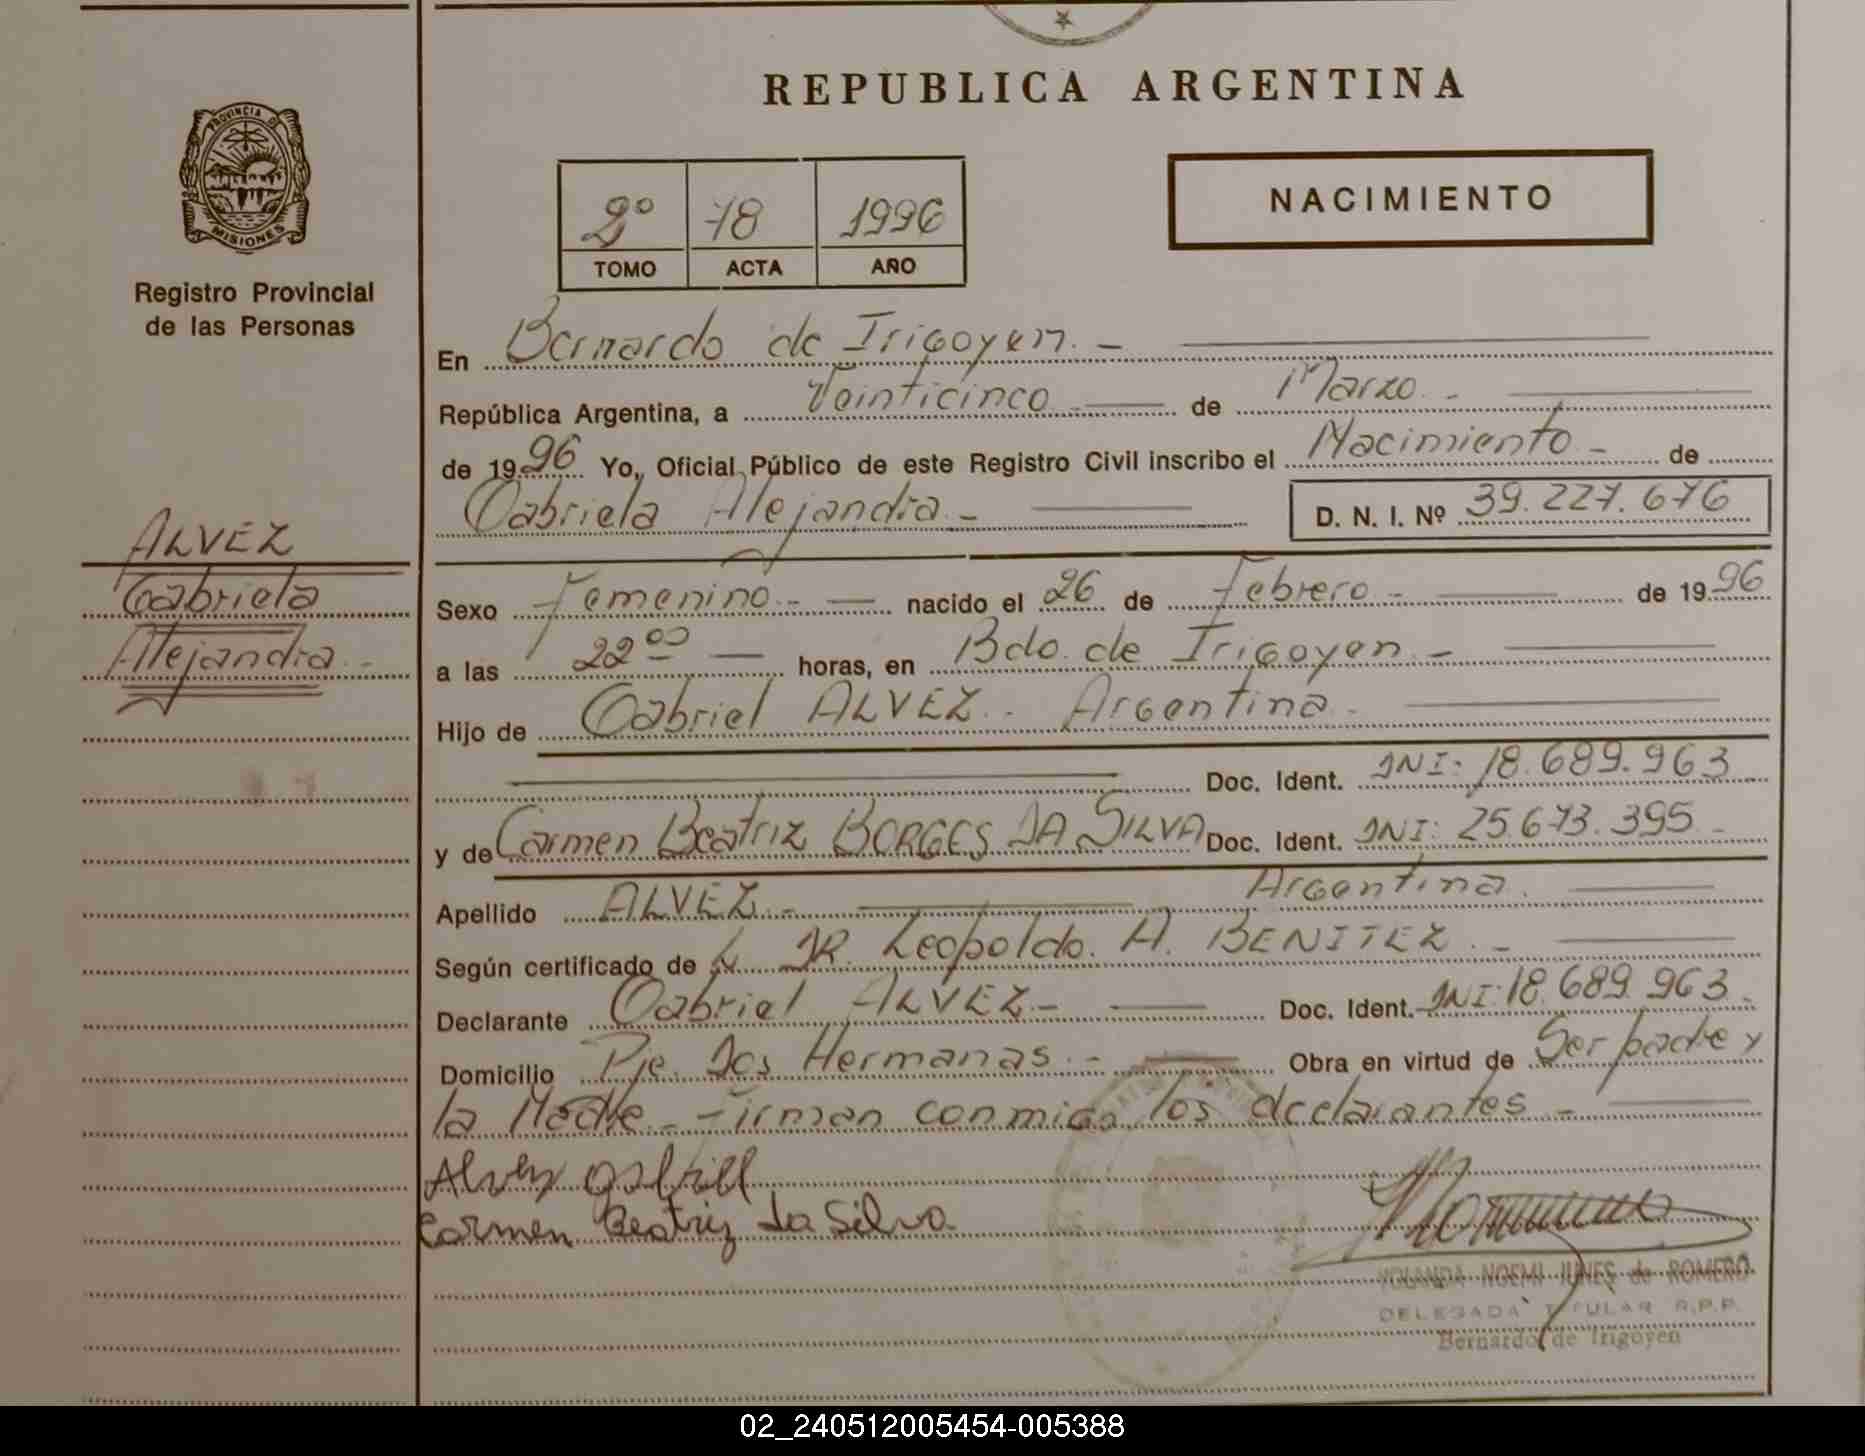 REPUBLICA ARGENTINA
PROVINCIA DE
MISIONES
Registro Provincial
de las Personas
2º 78 1996
TOMO ACTA AÑO
NACIMIENTO
En Bernardo de Irigoyen. -
República Argentina, a Veinticinco de Marzo. -
de 1996 Yo, Oficial Público de este Registro Civil inscribo el Nacimiento - de
Gabriela Alejandra - D. N. I. Nº 39.227.676
ALVEZ
Gabriela
Alejandra -
Sexo Femenino. - nacido el 26 de Febrero - de 1996
a las 22 00 horas, en Bdo. de Irigoyen -
Hijo de Gabriel ALVEZ. - Argentina -
Doc. Ident. DNI: 18.689.963
y de Carmen Beatriz BORGES DA SILVA Doc. Ident. DNI: 25.673.395 -
Argentina.
Apellido ALVEZ. -
Según certificado de DR. Leopoldo. A. BENITEZ. -
Declarante Gabriel ALVEZ - Doc. Ident. DNI: 18.689.963 -
Domicilio Pje. Dos Hermanas. - Obra en virtud de Ser padre y
la Madre - Firman conmigo los declarantes -
Alvez gabriel
Carmen Beatriz da Silva
YOLANDA NOEMI JUNES de ROMERO
DELEGADA TITULAR R.P.P.
Bernardo de Irigoyen
02_240512005454-005388